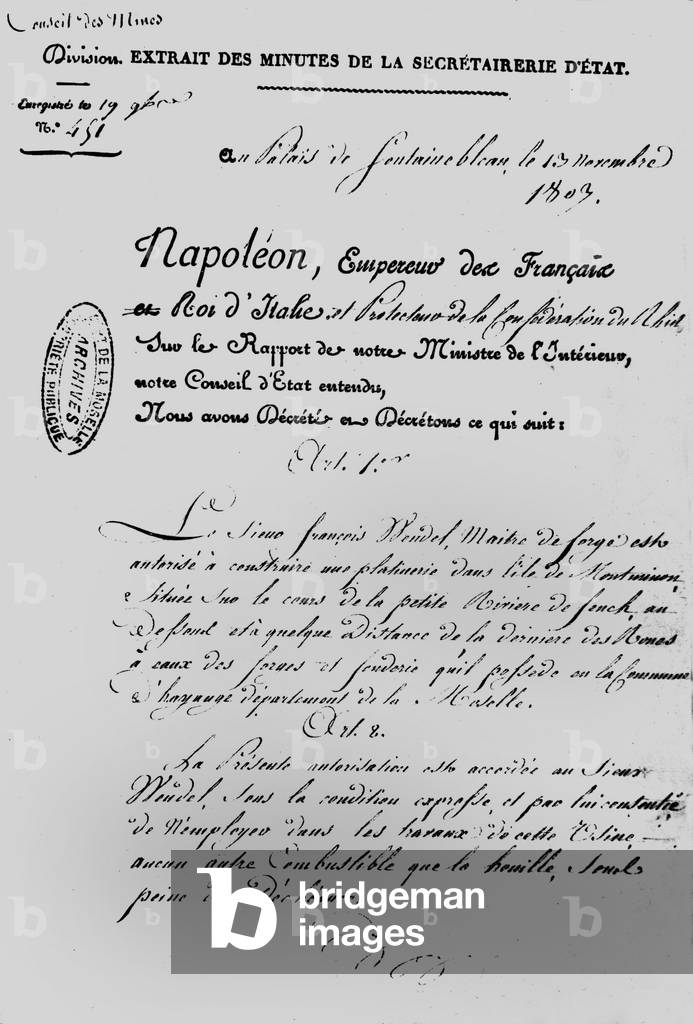 Conseil des Mines
Division. EXTRAIT DES MINUTES DE LA SECRÉTAIRERIE D'ÉTAT.
Enregistré le 19 9bre
N.° 451
au Palais de Fontainebleau, le 13 novembre
1807.
Napoléon, Empereur des Français
et Roi d'Italie et Protecteur de la Confédération du Rhin
Sur le Rapport de notre Ministre de l'Intérieur,
notre Conseil d'Etat entendu,
Nous avons Décrété et Décrétons ce qui suit:
DE LA MOSELLE
ARCHIVES
PROPRIÉTÉ PUBLIQUE
Art. 1.er
Le Sieur françois Wendel, Maitre de forge est
autorisé à construire une platinerie dans l'ile de
située sur le cours de la petite Riviere de fench, au
Dessous et à quelque Distance de la derniere des Roues
à eaux des forges et fonderie qu'il possede en la Commune
d'hayange département de la Moselle.
Art. 2.
La Présente autorisation est accordée au Sieur
Wendel, sous la condition expresse, et par lui consentie
de N'employer dans les travaux de cette Usine
aucun autre Combustible que la houille, sous
peine de Déchéance
bridgeman
images